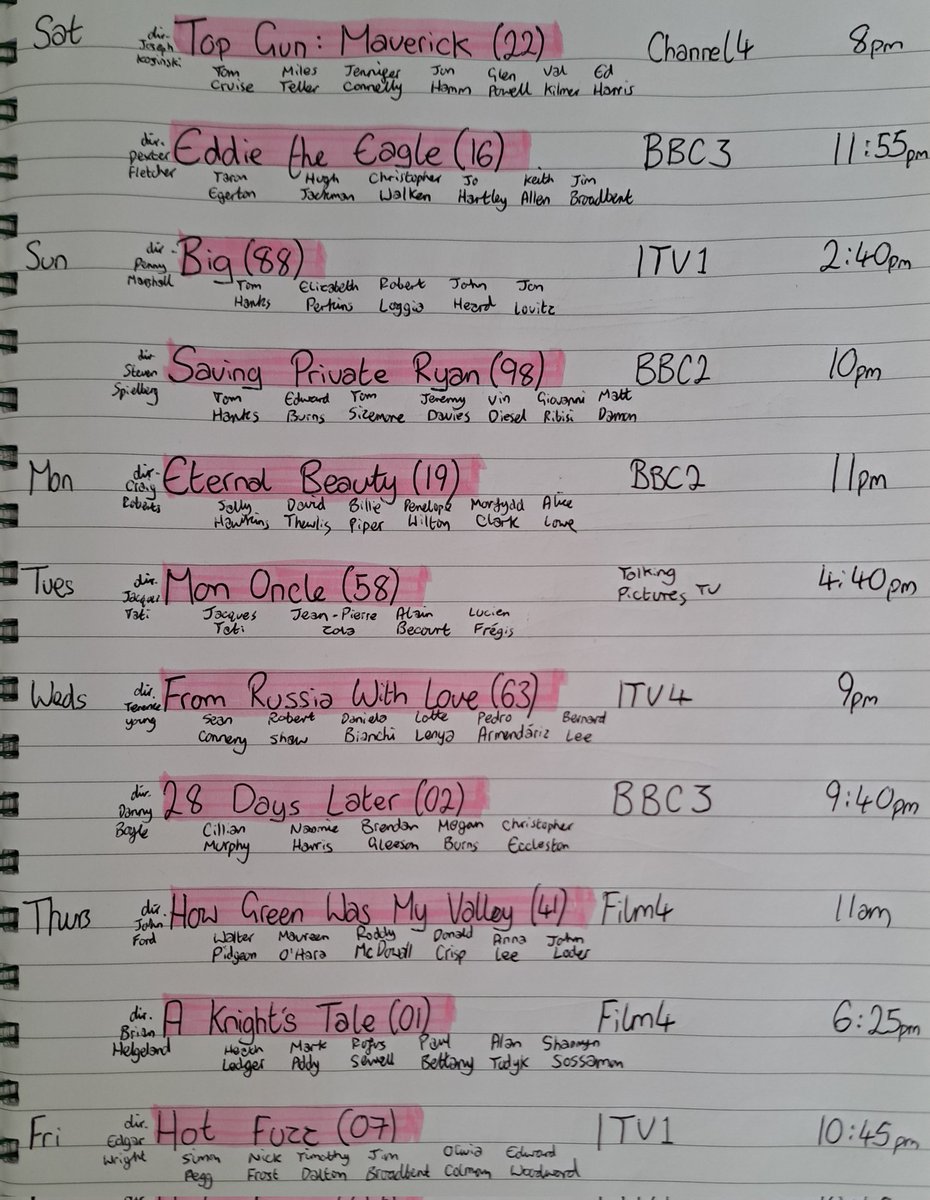 Sat dir. Joseph Kosinski Top Gun: Maverick (22) Channel4 8pm
Tom Cruise Miles Teller Jennifer Connelly Jon Hamm Glen Powell Val Kilmer Ed Harris
dir. Dexter Fletcher Eddie the Eagle (16) BBC3 11:55pm
Taron Egerton Hugh Jackman Christopher Walken Jo Hartley Keith Allen Jim Broadbent
Sun dir. Penny Marshall Big (88) ITV1 2:40pm
Tom Hanks Elizabeth Perkins Robert Loggia John Heard Jon Lovitz
dir Steven Spielberg Saving Private Ryan (98) BBC2 10pm
Tom Hanks Edward Burns Tom Sizemore Jeremy Davies Vin Diesel Giovanni Ribisi Matt Damon
Mon dir. Craig Roberts Eternal Beauty (19) BBC2 11pm
Sally Hawkins David Thewlis Billie Piper Penelope Wilton Morfydd Clark Alice Lowe
Tues dir. Jacques Tati Mon Oncle (58) Talking Pictures TV 4:40pm
Jacques Tati Jean-Pierre Zola Alain Becourt Lucien Frégis
Weds dir. Terence Young From Russia With Love (63) ITV4 9pm
Sean Connery Robert Shaw Daniela Bianchi Lotte Lenya Pedro Armendáriz Bernard Lee
dir. Danny Boyle 28 Days Later (02) BBC3 9:40pm
Cillian Murphy Naomie Harris Brendan Gleeson Megan Burns Christopher Eccleston
Thurs dir. John Ford How Green Was My Valley (41) Film4 11am
Walter Pidgeon Maureen O'Hara Roddy McDowall Donald Crisp Anna Lee John Loder
dir. Brian Helgeland A Knight's Tale (01) Film4 6:25pm
Heath Ledger Mark Addy Rufus Sewell Paul Bettany Alan Tudyk Shannyn Sossamon
Fri dir. Edgar Wright Hot Fuzz (07) ITV1 10:45pm
Simon Pegg Nick Frost Timothy Dalton Jim Broadbent Olivia Colman Edward Woodward